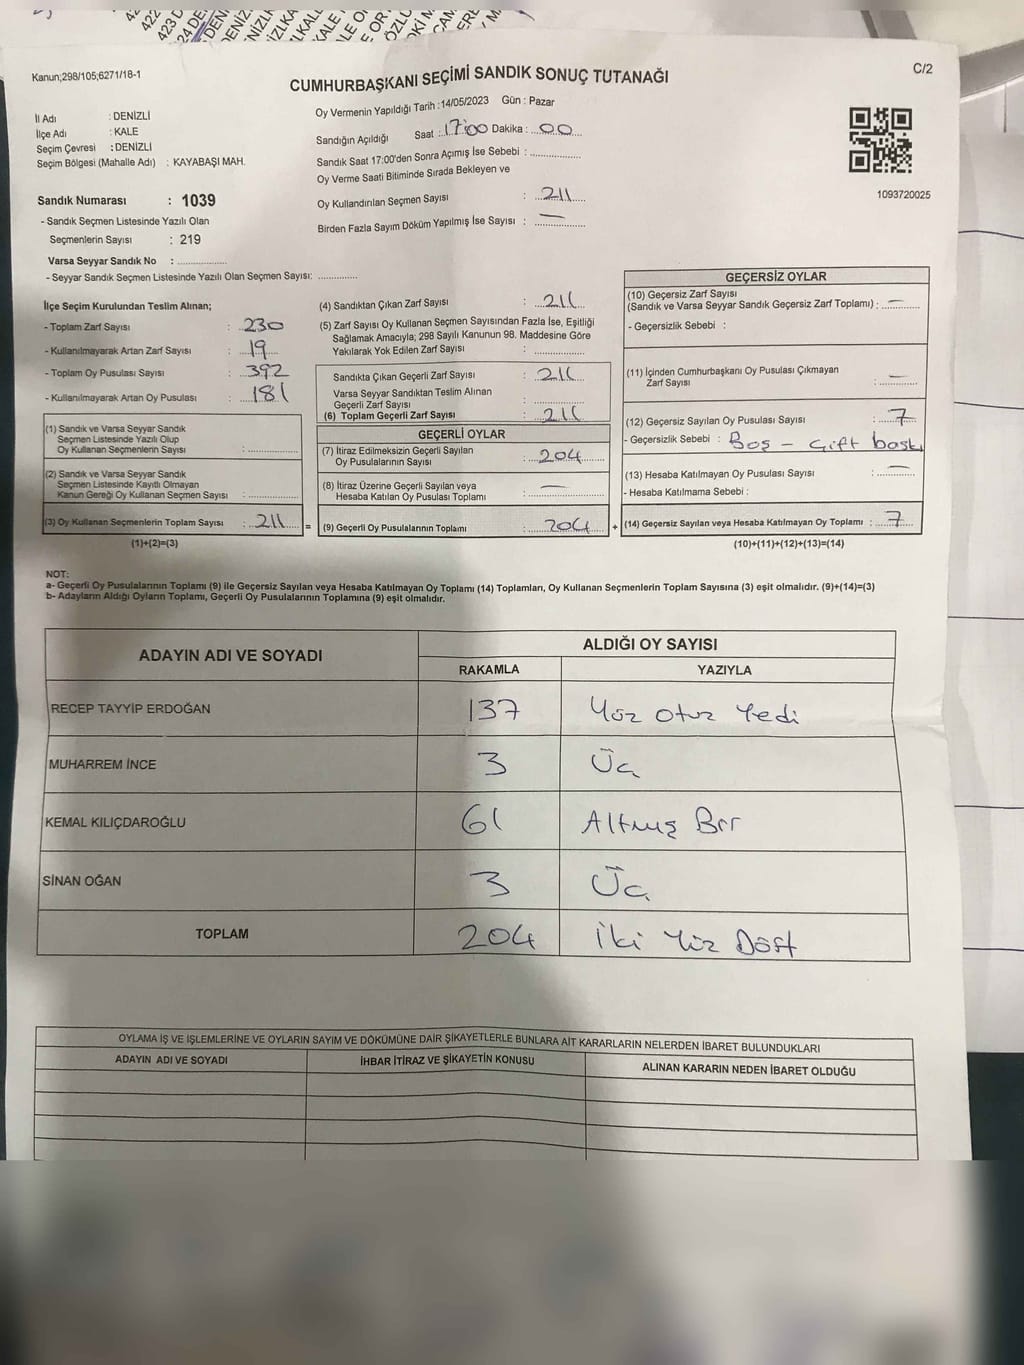 Kanun;298/105;6271/18-1
C/2
CUMHURBAŞKANI SEÇİMİ SANDIK SONUÇ TUTANAĞI
İl Adı : DENİZLİ
İlçe Adı : KALE
Seçim Çevresi : DENİZLİ
Seçim Bölgesi (Mahalle Adı) : KAYABAŞI MAH.
Oy Vermenin Yapıldığı Tarih :14/05/2023 Gün : Pazar
Sandığın Açıldığı Saat : 17:00 Dakika : 00
Sandık Saat 17:00'den Sonra Açımış İse Sebebi :
Oy Verme Saati Bitiminde Sırada Bekleyen ve
Oy Kullandırılan Seçmen Sayısı : 211
Birden Fazla Sayım Döküm Yapılmış İse Sayısı : —
1093720025
Sandık Numarası : 1039
- Sandık Seçmen Listesinde Yazılı Olan
Seçmenlerin Sayısı : 219
Varsa Seyyar Sandık No :
- Seyyar Sandık Seçmen Listesinde Yazılı Olan Seçmen Sayısı:
İlçe Seçim Kurulundan Teslim Alınan;
- Toplam Zarf Sayısı : 230
- Kullanılmayarak Artan Zarf Sayısı : 19
- Toplam Oy Pusulası Sayısı : 392
- Kullanılmayarak Artan Oy Pusulası : 181
(1) Sandık ve Varsa Seyyar Sandık
Seçmen Listesinde Yazılı Olup
Oy Kullanan Seçmenlerin Sayısı :
(2) Sandık ve Varsa Seyyar Sandık
Seçmen Listesinde Kayıtlı Olmayan
Kanun Gereği Oy Kullanan Seçmen Sayısı :
(3) Oy Kullanan Seçmenlerin Toplam Sayısı : 211 =
(1)+(2)=(3)
(4) Sandıktan Çıkan Zarf Sayısı : 211
(5) Zarf Sayısı Oy Kullanan Seçmen Sayısından Fazla İse, Eşitliği
Sağlamak Amacıyla; 298 Sayılı Kanunun 98. Maddesine Göre
Yakılarak Yok Edilen Zarf Sayısı :
Sandıkta Çıkan Geçerli Zarf Sayısı : 211
Varsa Seyyar Sandıktan Teslim Alınan
Geçerli Zarf Sayısı :
(6) Toplam Geçerli Zarf Sayısı : 211
GEÇERLİ OYLAR
(7) İtiraz Edilmeksizin Geçerli Sayılan
Oy Pusulalarının Sayısı : 204
(8) İtiraz Üzerine Geçerli Sayılan veya
Hesaba Katılan Oy Pusulası Toplamı : —
(9) Geçerli Oy Pusulalarının Toplamı : 204 +
GEÇERSİZ OYLAR
(10) Geçersiz Zarf Sayısı
(Sandık ve Varsa Seyyar Sandık Geçersiz Zarf Toplamı) : —
- Geçersizlik Sebebi :
(11) İçinden Cumhurbaşkanı Oy Pusulası Çıkmayan
Zarf Sayısı : —
(12) Geçersiz Sayılan Oy Pusulası Sayısı : 7
- Geçersizlik Sebebi : Boş - Çift baskı
(13) Hesaba Katılmayan Oy Pusulası Sayısı : —
- Hesaba Katılmama Sebebi :
(14) Geçersiz Sayılan veya Hesaba Katılmayan Oy Toplamı : 7
(10)+(11)+(12)+(13)=(14)
NOT:
a- Geçerli Oy Pusulalarının Toplamı (9) ile Geçersiz Sayılan veya Hesaba Katılmayan Oy Toplamı (14) Toplamları, Oy Kullanan Seçmenlerin Toplam Sayısına (3) eşit olmalıdır. (9)+(14)=(3)
b- Adayların Aldığı Oyların Toplamı, Geçerli Oy Pusulalarının Toplamına (9) eşit olmalıdır.
ADAYIN ADI VE SOYADI
ALDIĞI OY SAYISI
RAKAMLA YAZIYLA
RECEP TAYYİP ERDOĞAN 137 Yüz Otuz Yedi
MUHARREM İNCE 3 Üç
KEMAL KILIÇDAROĞLU 61 Altmış Bir
SİNAN OĞAN 3 Üç
TOPLAM 204 İki Yüz Dört
OYLAMA İŞ VE İŞLEMLERİNE VE OYLARIN SAYIM VE DÖKÜMÜNE DAİR ŞİKAYETLERLE BUNLARA AİT KARARLARIN NELERDEN İBARET BULUNDUKLARI
ADAYIN ADI VE SOYADI İHBAR İTİRAZ VE ŞİKAYETİN KONUSU ALINAN KARARIN NEDEN İBARET OLDUĞU